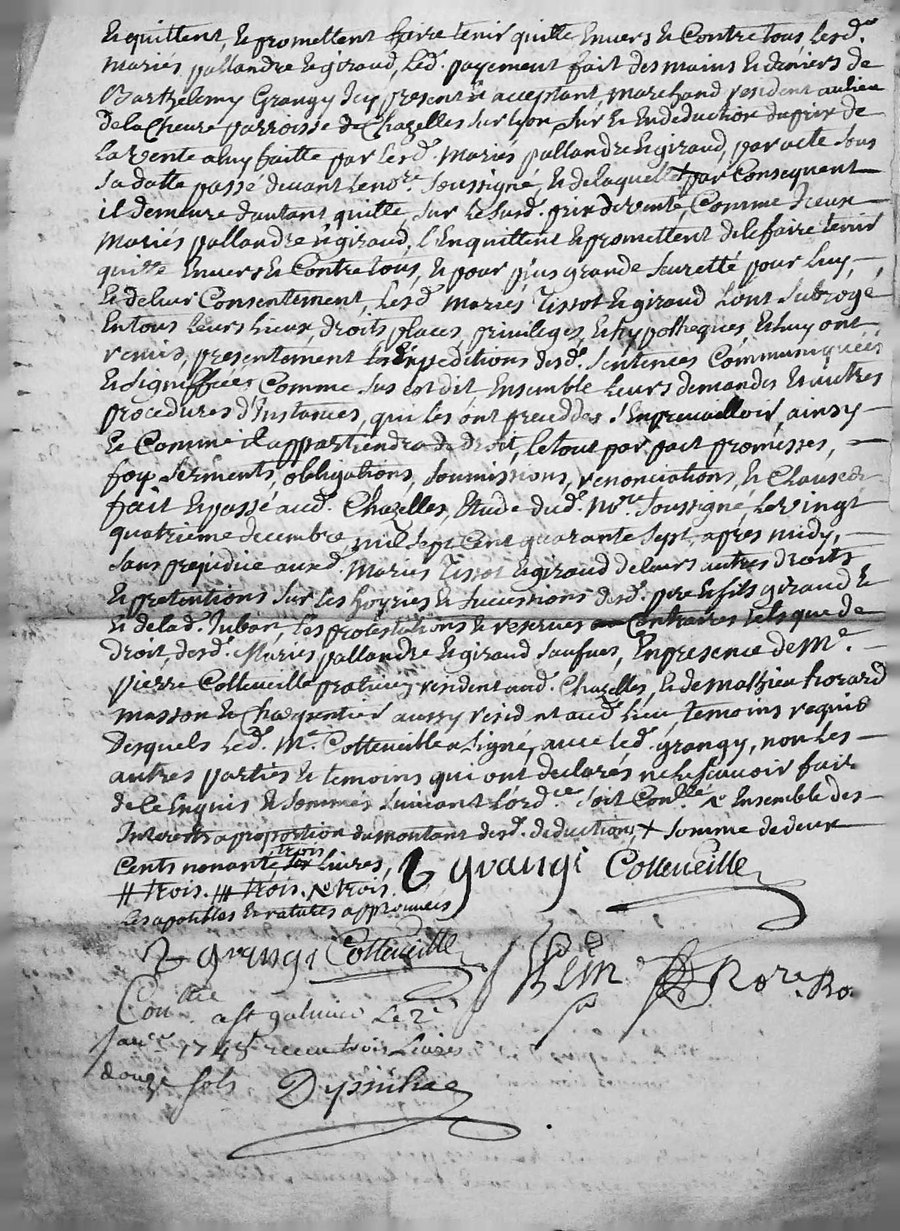 Et quittent, et promettent faire tenir quitte Envers et Contre tous lesd.
Mariés pallandre et giraud, Led. payement fait des mains et deniers de
Barthelemy Grangy Icy present et acceptant, Marchand resident au lieu
de la Cheure parroisse de Chazelles sur Lyon, sur et Endeduction du prix de
La vente a luy faitte par lesd. Mariés pallandre et giraud, par acte sous
sa datte passé devant le no.re soussigné, et de laquelle par Consequent
il demeure d'autant quitte, sur le susd. prix de vente, Comme Iceux
Mariés pallandre et giraud, l'Enquittent et promettent de le faire tenir
quitte Envers et Contre tous, et pour plus grande seuretté pour luy,
et de leur Consentement, Lesd. Mariés Tissot et giraud L'ont subrogé
En tous Leurs Lieux, droits, places, privileges, et hypotheques, et luy ont
remis, présentement les Expeditions desd. sentences Communiquées
et signiffiées Comme sus est dit Ensemble leurs demandes et autres
procedures d'Instances, qui les ont precedées s'En prevailloir, ainsy
et Comme il appartiendra de Droit, le tout par pait promesses,
foy, serments, obligations, soumissions, renonciations, et Clauses
fait et passé aud. Chazelles, Etude dud. no.re soussigné, Le vingt
quatrieme decembre mil sept cent quarante sept, apres midy,
sans prejudice auxd. Mariés Tissot et giraud de leurs autres droits
et pretentions sur les hoyries et successions desd. pere et fils giraud et
et de lad. Juban, les protestations et reserves Contraires telsque de
droit, desd. Mariés pallandre et giraud sauves, En presence de M.e
pierre Cotteveille praticien resident aud. Chazelles, et de mathieu
masson et Charpentier aussy resident aud. lieu, temoins requis
Desquels led. M.e Cotteveille a signé, avec led. grangy, non les
autres parties et temoins qui ont declarés ne le sçauoir fair
de ce Enquis et sommés suivant L'ord.ce soit Con.llé Ensemble des
Interests a proportion du montant desd. deductions + somme de deux
Cents nonante trois livres,
# trois. # trois. trois.
grangi Cotteveille
Les apostilles et ratures approuvées
grangi Cotteveille
No.re Ro.
Con.llé a st galmier Le 2.e
janv.er 1748 receu trois Livres
douze sols